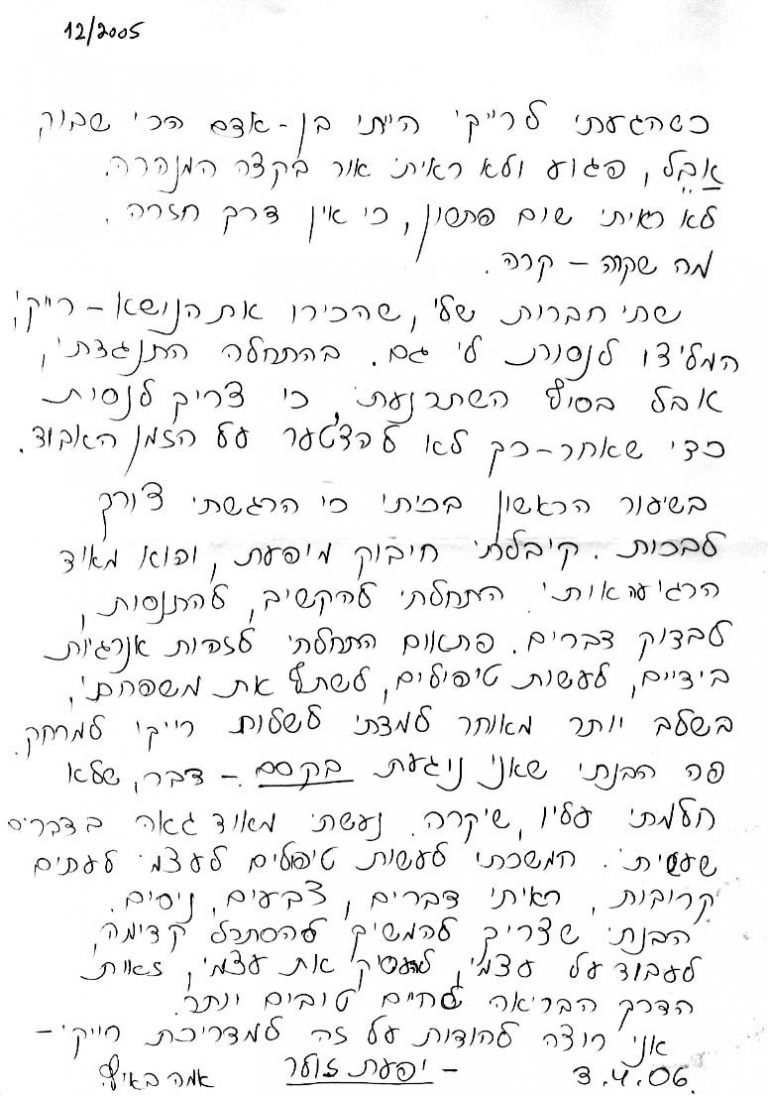 12/2005
כשהגעתי לרייקי הייתי בן-אדם הכי שבור,
אֲבֵל, פגוע ולא ראיתי אור בקצה המנהרה.
לא ראיתי שום פתרון, כי אין דרך חזרה.
מה שקרה – קרה.
שתי חברות שלי, שהכירו את הנושא – רייקי,
המליצו לנסות לי גם. בהתחלה התנגדתי,
אבל בסוף השתכנעתי, כי צריך לנסות
כדי שאחר-כך לא להצטער על הזמן האבוד.
בשיעור הראשון בכיתי כי הרגשתי צורך
לבכות. קיבלתי חיבוק מיפעת, והוא מאוד
הרגיע אותי. התחלתי להקשיב, להתנסות,
לבדוק דברים. פתאום התחלתי לזהות אנרגיות
בידיים, לעשות טיפולים, לשתף את משפחתי,
בשלב יותר מאוחר למדתי לשלוח רייקי למרחק.
פה הבנתי שאני נוגעת בקסם – דבר, שלא
חלמתי עליו, שיקרה. נעשתי מאוד גאה בדברים
שעשיתי. המשכתי לעשות טיפולים לעצמי לעתים
קרובות, ראיתי דברים, צבעים, ניסים.
הבנתי שצריך להמשיך להסתכל קדימה,
לעבוד על עצמי, להעסיק את עצמי, זאות
הדרך הבריאה לחיים טובים יותר.
אני רוצה להודות על זה למדריכת רייקי –
– יפעת זוער
3.4.06